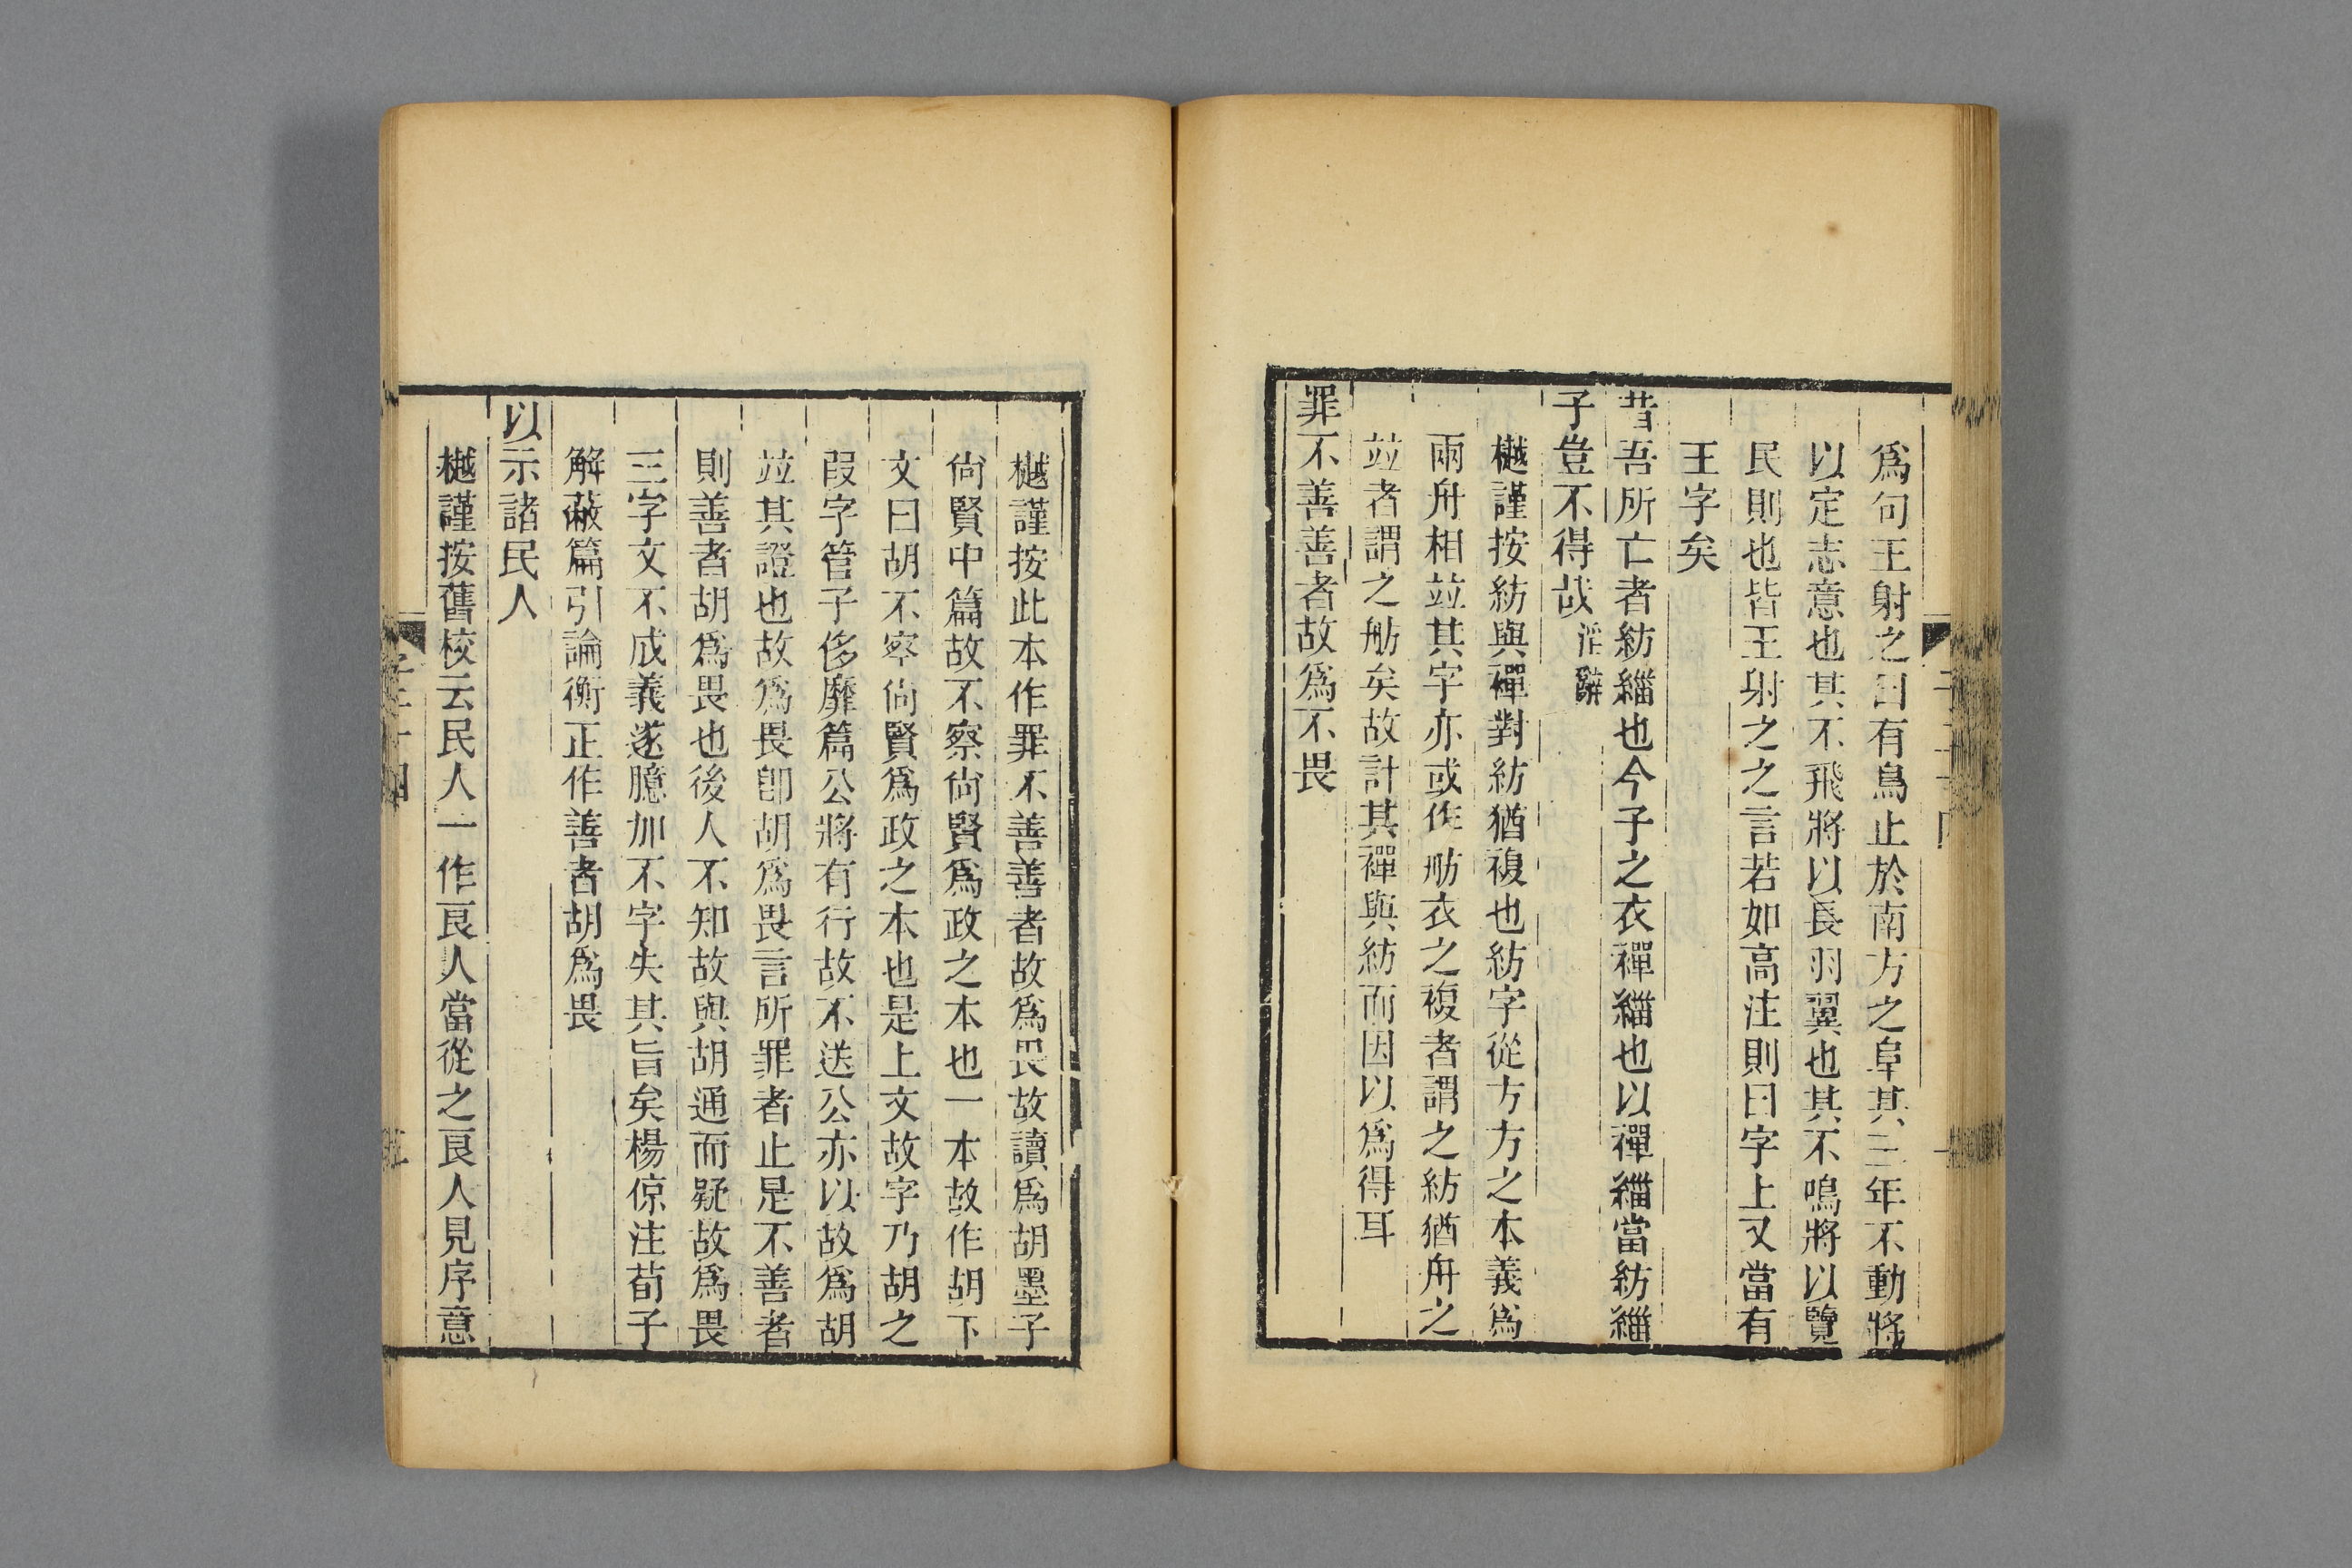 爲句王射之曰有鳥止於南方之阜其三年不動將
以定志意也其不飛將以長羽翼也其不鳴將以覽
民則也皆王射之之言若如高注則曰字上又當有
王字矣
昔吾所亡者紡緇也今子之衣禪緇也以禪緇當紡緇
子豈不得哉淫辭
樾謹按紡與禪對紡猶複也紡字從方方之本義爲
兩舟相竝其字亦或作舫衣之複者謂之紡猶舟之
竝者謂之舫矣故計其禪與紡而因以爲得耳
罪不善善者故爲不畏
樾謹按此本作罪不善善者故爲畏故讀爲胡墨子
尙賢中篇故不察尙賢爲政之本也一本故作胡下
文曰胡不察尙賢爲政之本也是上文故字乃胡之
叚字管子侈靡篇公將有行故不送公亦以故爲胡
竝其證也故爲畏卽胡爲畏言所罪者止是不善者
則善者胡爲畏也後人不知故與胡通而疑故爲畏
三字文不成義遂臆加不字失其旨矣楊倞注荀子
解蔽篇引論衡正作善者胡爲畏
以示諸民人
樾謹按舊校云民人一作良人當從之良人見序意